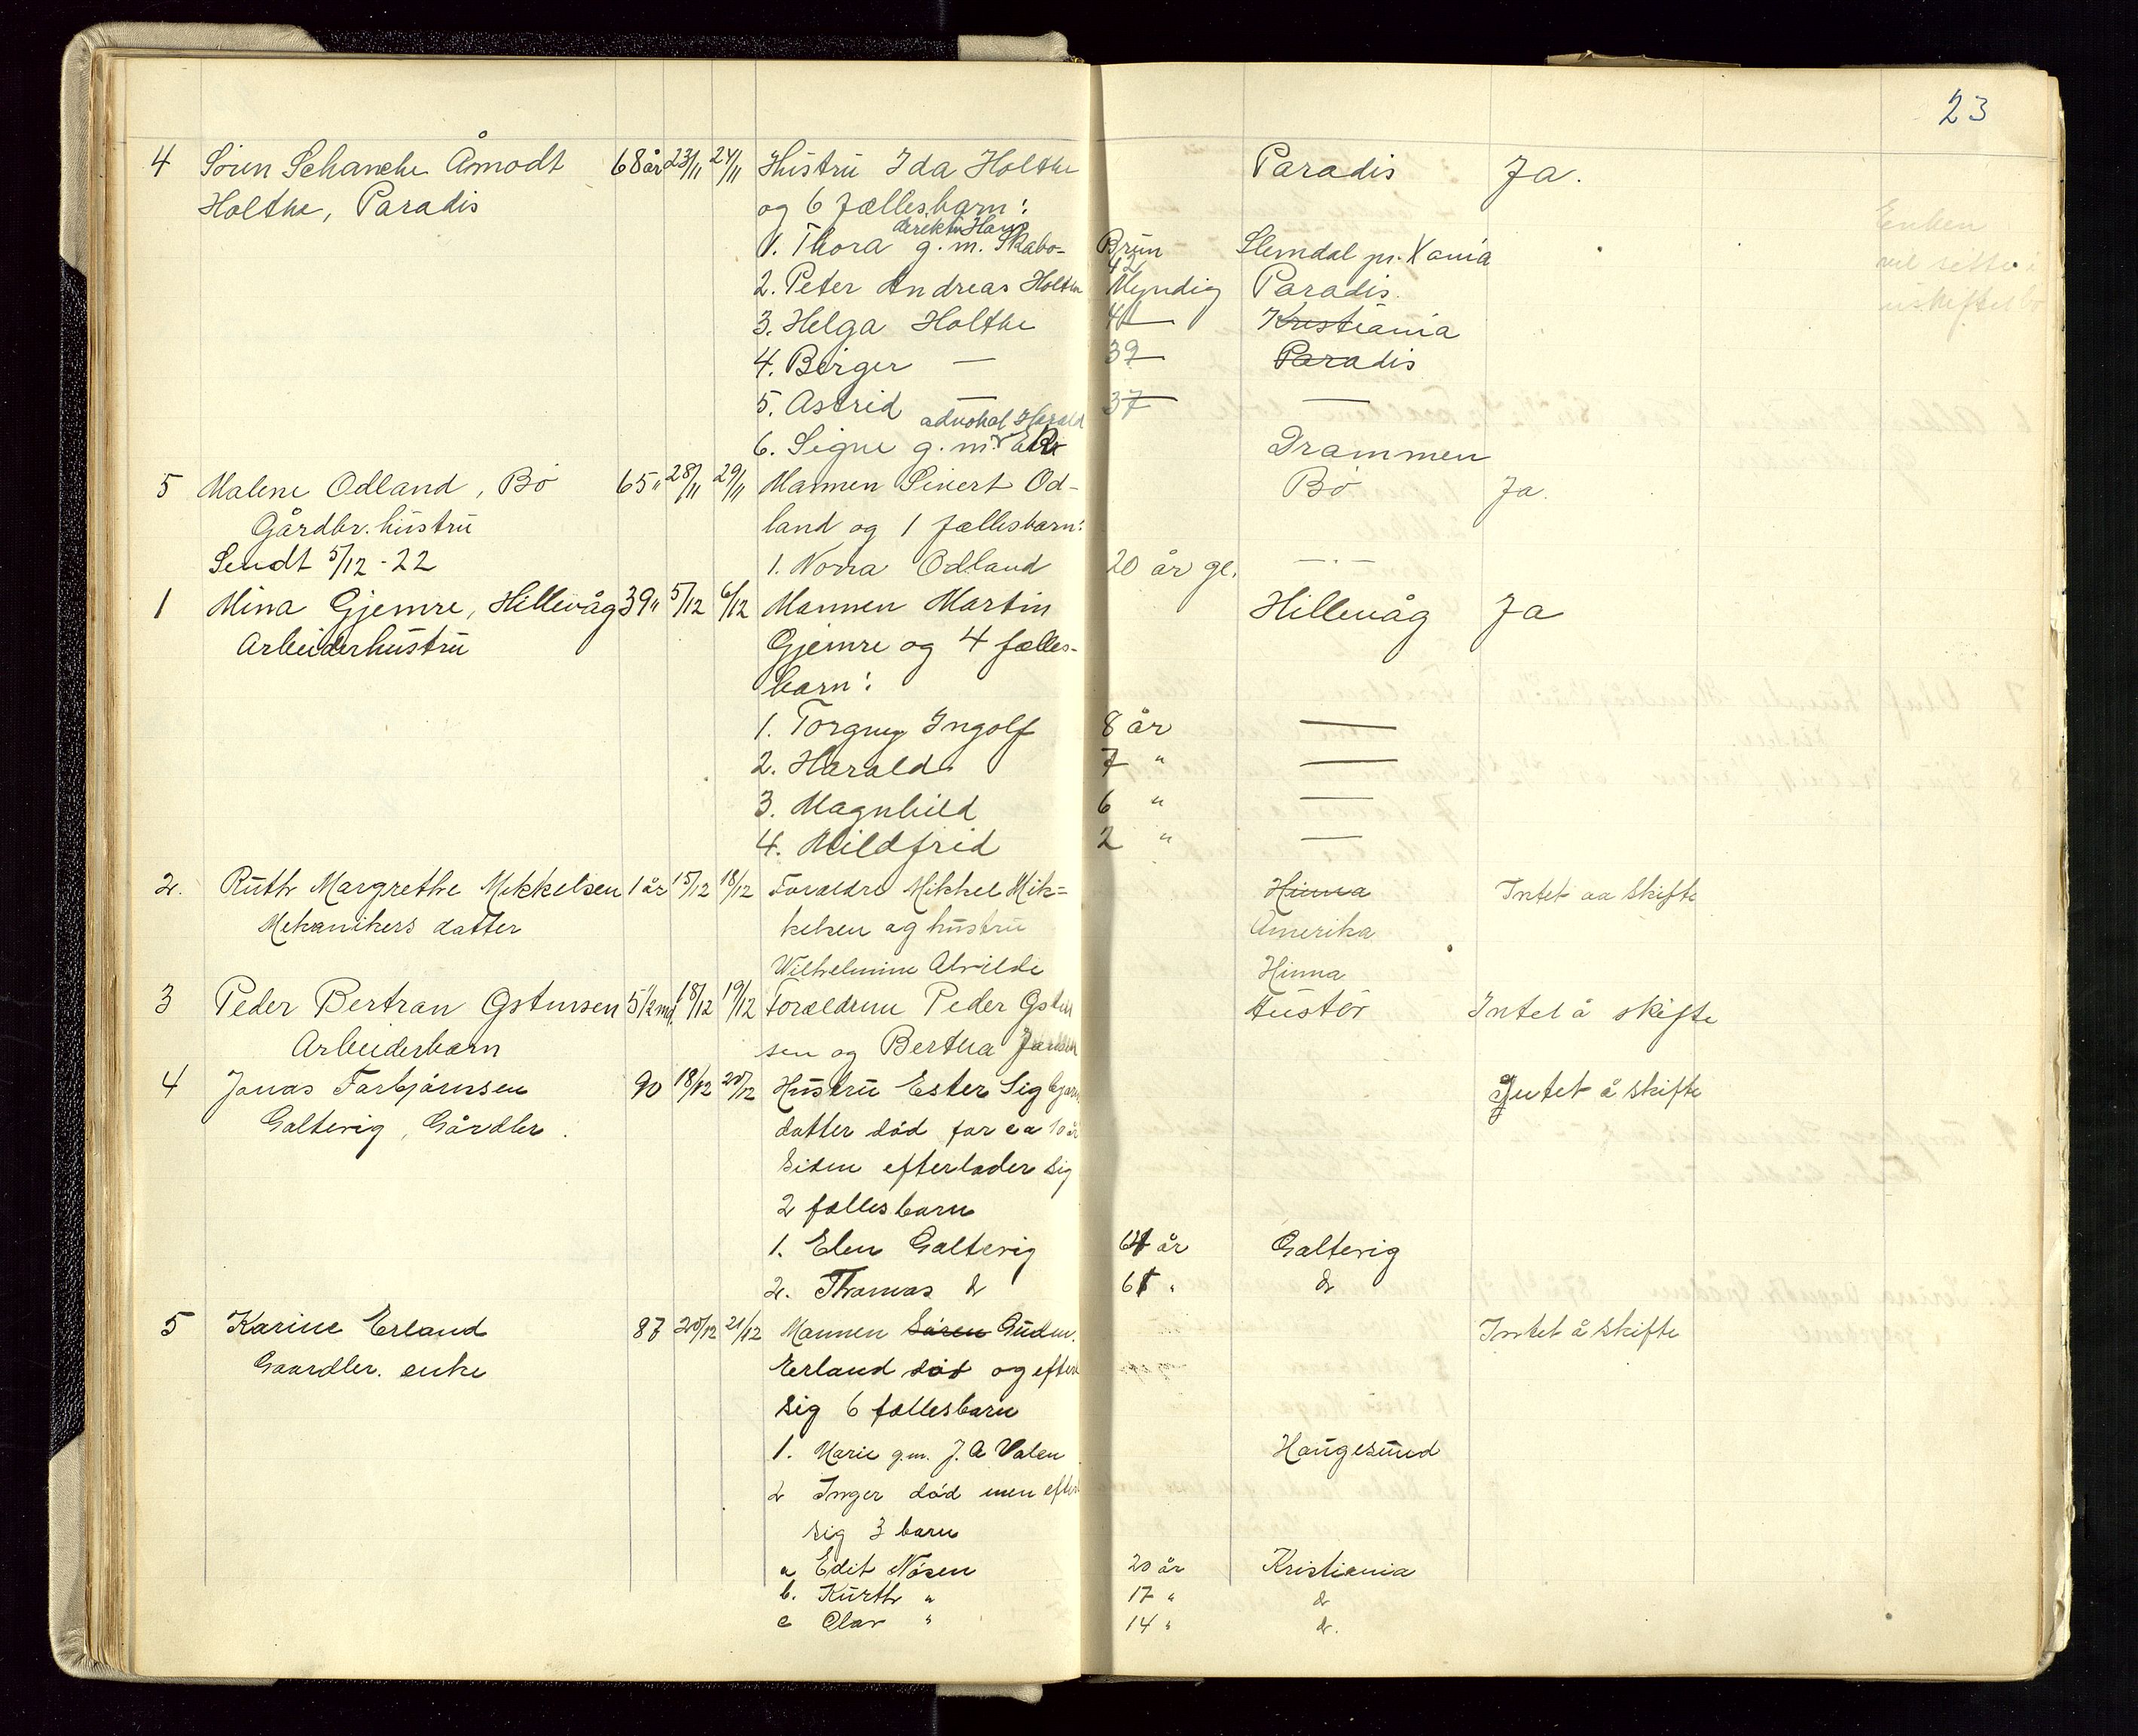 23
4 Sören Schanche Åmodt 68 år 23/11 24/11 Hustru Ida Holthe Paradis Ja.
Holthe, Paradis og 6 fællesbarn: Enken
direktör Hans
1. Thora g. m. Skabo- Brun Slemdal pr. Xania vil sitte i
42
2. Peter Andreas Holthe Myndig Paradis. uskiftet bo
3. Helga Holthe 41 Kristiania
4. Birger — 39 Paradis
5. Astrid — 37 —
advokat Harald
6. Signe g. m. Drammen
5 Malene Odland, Bö 65 " 28/11 29/11 Mannen Sivert Od- Bö Ja.
Gårdbr. hustru land og 1 fællesbarn:
Sendt 5/12 - 22 1. Norra Odland 20 år gl. — · —
1 Mina Gjemre, Hillevåg 39 " 5/12 6/12 Mannen Martin Hillevåg Ja
Arbeiderhustru Gjemre og 4 fælles-
barn:
1. Torgny Ingolf 8 år —
2. Harald 7 " —
3. Magnhild 6 " —
4. Mildfrid 2 " —
2. Ruth Margrethe Mikkelsen 1 år 15/12 18/12 Forældre Mikkel Mik= Hinna Intet aa skifte
Mekanikers datter kelsen og hustru Amerika
Wilhelmine Alvilde Hinna
3 Peder Bertran Gstursen 5 1/2 md. 18/12 19/12 Forældrene Peder Intet å skifte
Arbeiderbarn sen og Bertha
4 Jonas Torbjörnsen 90 18/12 20/12 Hustru Ester Sigbjörns Intet å skifte
Galtevig, Gårdbr. datter död for ca 10 år
siden efterlader sig
2 fællesbarn
1. Elen Galtevig 64 år Galtevig
2. Thomas do 61 " do
5 Karine Erland 87 20/12 21/12 Mannen Sören Gudm. Intet å skifte
Gaardbr. enke Erland död og efterl
sig 6 fællesbarn
1. Marie g.m. J. A Valen Haugesund
2 Inger död men efterl
sig 3 barn
a Edit Nösen 20 år Kristiania
b. Kurth " 17 " do
c Olav " 14 " do.